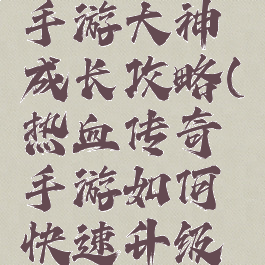 手游大神
成长攻略(
热血传奇
手游如何
快速升级